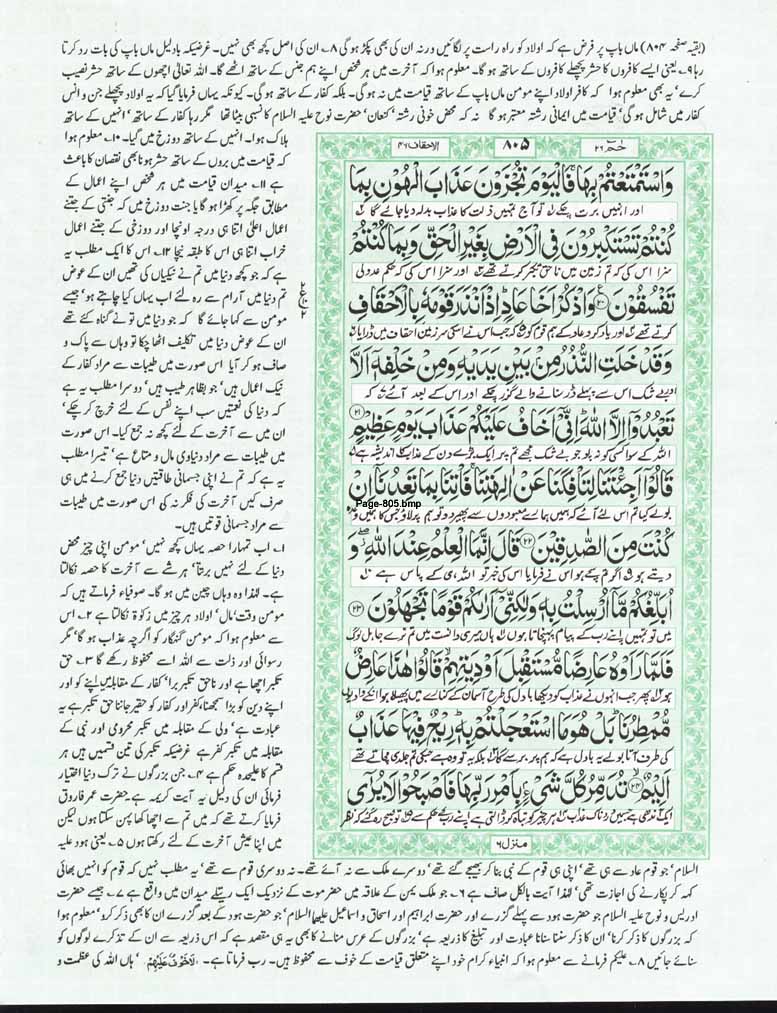 (بقیہ صفحہ ۸۰۴) ماں باپ پر فرض ہے کہ اولاد کو راہ راست پر لگائیں ورنہ ان کی بھی پکڑ ہو گی ۸۔ ان کی اصل کچھ بھی نہیں۔ غرضیکہ بادلیل ماں باپ کی بات رد کرتا
رہا ۹۔ یعنی ایسے کافروں کا حشر پچھلے کافروں کے ساتھ ہو گا۔ معلوم ہوا کہ آخرت میں ہر شخص اپنے ہم جنس کے ساتھ اٹھے گا۔ اللہ تعالیٰ اچھوں کے ساتھ حشر نصیب
کرے' یہ بھی معلوم ہوا کہ کافر اولاد اپنے مومن ماں باپ کے ساتھ قیامت میں نہ ہو گی۔ بلکہ کفار کے ساتھ ہو گی۔ کیونکہ یہاں فرمایا گیا کہ یہ اولاد پچھلے جن و انس
کفار میں شامل ہو گی' قیامت میں ایمانی رشتہ معتبر ہو گا نہ کہ محض خونی رشتہ' کنعان' حضرت نوح علیہ السلام کا نسبی بیٹا تھا مگر رہا کفار کے ساتھ' انہیں کے ساتھ
ہلاک ہوا۔ انہیں کے ساتھ دوزخ میں گیا۔ ۱۰۔ معلوم ہوا
کہ قیامت میں بروں کے ساتھ حشر ہونا بھی نقصان کا باعث
ہے ۱۱۔ میدان قیامت میں ہر شخص اپنے اعمال کے
مطابق جگہ پر کھڑا ہو گا یا جنت دوزخ میں کہ جنتی کے جتنے
اعمال اعلیٰ اتنا ہی درجہ اونچا اور دوزخی کے جتنے اعمال
خراب اتنا ہی اس کا طبقہ نیچا ۱۲۔ اس کا ایک مطلب یہ
ہے کہ جو کچھ دنیا میں تم نے نیکیاں کی تھیں ان کے عوض
تم دنیا میں آرام سے رہ لئے اب یہاں کیا چاہتے ہو' جیسے
مومن سے کہا جائے گا کہ جو دنیا میں تو نے گناہ کئے تھے
ان کے عوض دنیا میں تکلیف اٹھا چکا تو وہاں سے پاک و
صاف ہو کر آیا اس صورت میں طیبات سے مراد کفار کے
نیک اعمال ہیں' جو بظاہر طیب ہیں' دوسرا مطلب یہ ہے
کہ دنیا کی نعمتیں سب اپنے نفس کے لئے خرچ کر چکے'
ان میں سے آخرت کے لئے کچھ نہ جمع کیا۔ اس صورت
میں طیبات سے مراد دنیاوی مال و متاع ہے' تیسرا مطلب
یہ ہے کہ تم نے اپنی جسمانی طاقتیں دنیا جمع کرنے میں ہی
صرف کیں آخرت کی فکر نہ کی اس صورت میں طیبات
سے مراد جسمانی قوتیں ہیں۔
۱۔ اب تمہارا حصہ یہاں کچھ نہیں' مومن اپنی چیز محض
دنیا کے لئے نہیں برتتا' ہر شے سے آخرت کا حصہ نکالتا
ہے۔ لہٰذا وہ وہاں چین میں ہو گا۔ صوفیاء فرماتے ہیں کہ
مومن وقت' مال' اولاد ہر چیز میں زکوٰۃ نکالتا ہے ۲۔ اس
سے معلوم ہوا کہ مومن گنہگار کو اگرچہ عذاب ہو گا' مگر
رسوائی اور ذلت سے اللہ اسے محفوظ رکھے گا ۳۔ حق
تکبر اچھا ہے اور ناحق تکبر برا' کفار کے مقابلہ میں اپنے کو اور
اپنے دین کو بڑا سمجھنا' کفر اور کفار کو حقیر جاننا حق تکبر ہے یہ
عبادت ہے' ولی کے مقابلہ میں تکبر محرومی اور نبی کے
مقابلہ میں تکبر کفر ہے غرضیکہ تکبر کی تین قسمیں ہیں ہر
قسم کا علیحدہ حکم ہے ۴۔ جن بزرگوں نے ترک دنیا اختیار
فرمائی ان کی دلیل یہ آیت کریمہ ہے حضرت عمر فاروق
فرمایا کرتے تھے کہ میں تم سے اچھا کھا پہن سکتا ہوں لیکن
میں اپنا عیش آخرت کے لئے رکھتا ہوں ۵۔ یعنی ہود علیہ
حٰمٓ ۲۶
۸۰۵
الاحقاف ۴۶
وَاسْتَمْتَعْتُمْ بِهَا فَالْيَوْمَ تُجْزَوْنَ عَذَابَ الْهُوْنِ بِمَا
اور انہیں برت چکے تو آج تمہیں ذلت کا عذاب بدلہ دیا جائے گا
كُنْتُمْ تَسْتَكْبِرُوْنَ فِى الْاَرْضِ بِغَيْرِ الْحَقِّ وَبِمَا كُنْتُمْ
سزا اس کی کہ تم زمین میں ناحق تکبر کرتے تھے اور سزا اس کی کہ حکم عدولی
تَفْسُقُوْنَ ۲۰ وَاذْكُرْ اَخَا عَادٍ اِذْ اَنْذَرَ قَوْمَهٗ بِالْاَحْقَافِ
کرتے تھے اور یاد کرو عاد کے ہم قوم کو جب اس نے اسکی سرزمین احقاف میں ڈرایا
وَقَدْ خَلَتِ النُّذُرُ مِنْ بَيْنِ يَدَيْهِ وَمِنْ خَلْفِهٖ اَلَّا
اور بے شک اس سے پہلے ڈر سنانے والے گزر چکے اور اس کے بعد آئے کہ
تَعْبُدُوْا اِلَّا اللّٰهَ اِنِّىْ اَخَافُ عَلَيْكُمْ عَذَابَ يَوْمٍ عَظِيْمٍ ۲۱
اللہ کے سوا کسی کو نہ پوجو بے شک مجھے تم پر ایک بڑے دن کے عذاب کا اندیشہ ہے
قَالُوْا اَجِئْتَنَا لِتَاْفِكَنَا عَنْ اٰلِهَتِنَا فَاْتِنَا بِمَا تَعِدُنَا اِنْ
Page-805.bmp
بولے کیا تم اس لئے آئے کہ ہمیں ہمارے معبودوں سے پھیر دو تو ہم پر لاؤ جس کا ہمیں وعدہ
كُنْتَ مِنَ الصّٰدِقِيْنَ ۲۲ قَالَ اِنَّمَا الْعِلْمُ عِنْدَ اللّٰهِ وَ
دیتے ہو اگر تم سچے ہو اس نے فرمایا اس کی خبر تو اللہ ہی کے پاس ہے
اُبَلِّغُكُمْ مَّا اُرْسِلْتُ بِهٖ وَلٰكِنِّىْ اَرٰىكُمْ قَوْمًا تَجْهَلُوْنَ ۲۳
میں تو تمہیں اپنے رب کے پیام پہنچاتا ہوں ہاں میری دانست میں تم نرے جاہل لوگ
فَلَمَّا رَاَوْهُ عَارِضًا مُّسْتَقْبِلَ اَوْدِيَتِهِمْ قَالُوْا هٰذَا عَارِضٌ
ہو پھر جب انہوں نے عذاب کو دیکھا بادل کی طرح آسمان کے کنارے میں پھیلا ہوا انکے وادیوں
مُّمْطِرُنَا بَلْ هُوَ مَا اسْتَعْجَلْتُمْ بِهٖ رِيْحٌ فِيْهَا عَذَابٌ
کی طرف آتا بولے یہ بادل ہے کہ ہم پر برسے گا بلکہ یہ تو وہ ہے جس کی تم جلدی مچاتے تھے
اَلِيْمٌ ۲۴ تُدَمِّرُ كُلَّ شَىْءٍۢ بِاَمْرِ رَبِّهَا فَاَصْبَحُوْا لَا يُرٰٓى
ایک آندھی ہے جس میں دردناک عذاب ہر چیز کو تباہ کر ڈالتی ہے اپنے رب کے حکم سے تو صبح رہ گئے کہ نظر
منزل ۶
السلام' جو قوم عاد سے ہی تھے' اپنی ہی قوم کے نبی بنا کر بھیجے گئے تھے' دوسرے ملک سے نہ آئے تھے۔ نہ دوسری قوم سے تھے' یہ مطلب نہیں کہ قوم کو انہیں بھائی
کہہ کر پکارنے کی اجازت تھی' لہٰذا آیت بالکل صاف ہے ۶۔ جو ملک یمن کے علاقہ میں حضرموت کے نزدیک ایک ریتلے میدان میں واقع ہے ۷۔ جیسے حضرت
ادریس و نوح علیہ السلام جو حضرت ہود سے پہلے گزرے اور حضرت ابراہیم اور اسحاق و اسماعیل علیہما السلام' جو حضرت ہود کے بعد گزرے ان کا بھی ذکر کرو' معلوم ہوا
کہ بزرگوں کا ذکر کرنا' ان کا ذکر سننا سنانا عبادت اور تبلیغ کا ذریعہ ہے' بزرگوں کے عرس منانے کا بھی یہ ہی مقصد ہے کہ اس ذریعہ سے ان کے تذکرے لوگوں کو
سنائے جائیں ۸۔ علیکم فرمانے سے معلوم ہوا کہ انبیاء کرام خود اپنے متعلق قیامت کے خوف سے محفوظ ہیں۔ رب فرماتا ہے۔ لَاخَوْفٌ عَلَيْهِمْ' ہاں اللہ کی عظمت و